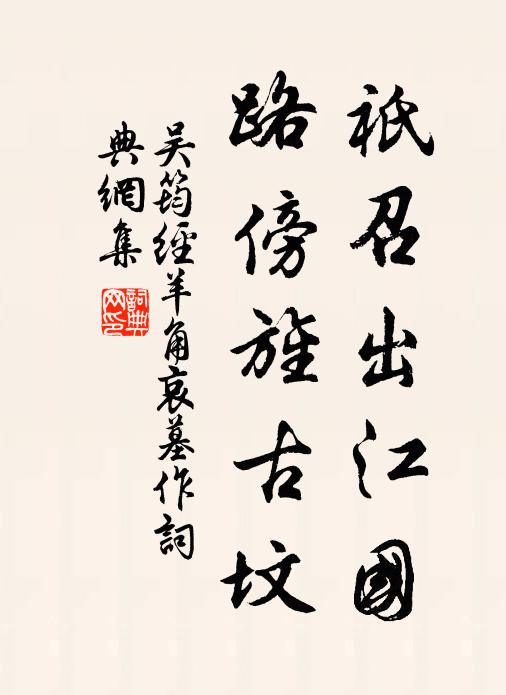 祇召出江國
路傍旌古墳
吳筠經羊角哀墓作詞
典網集
詞典
网印